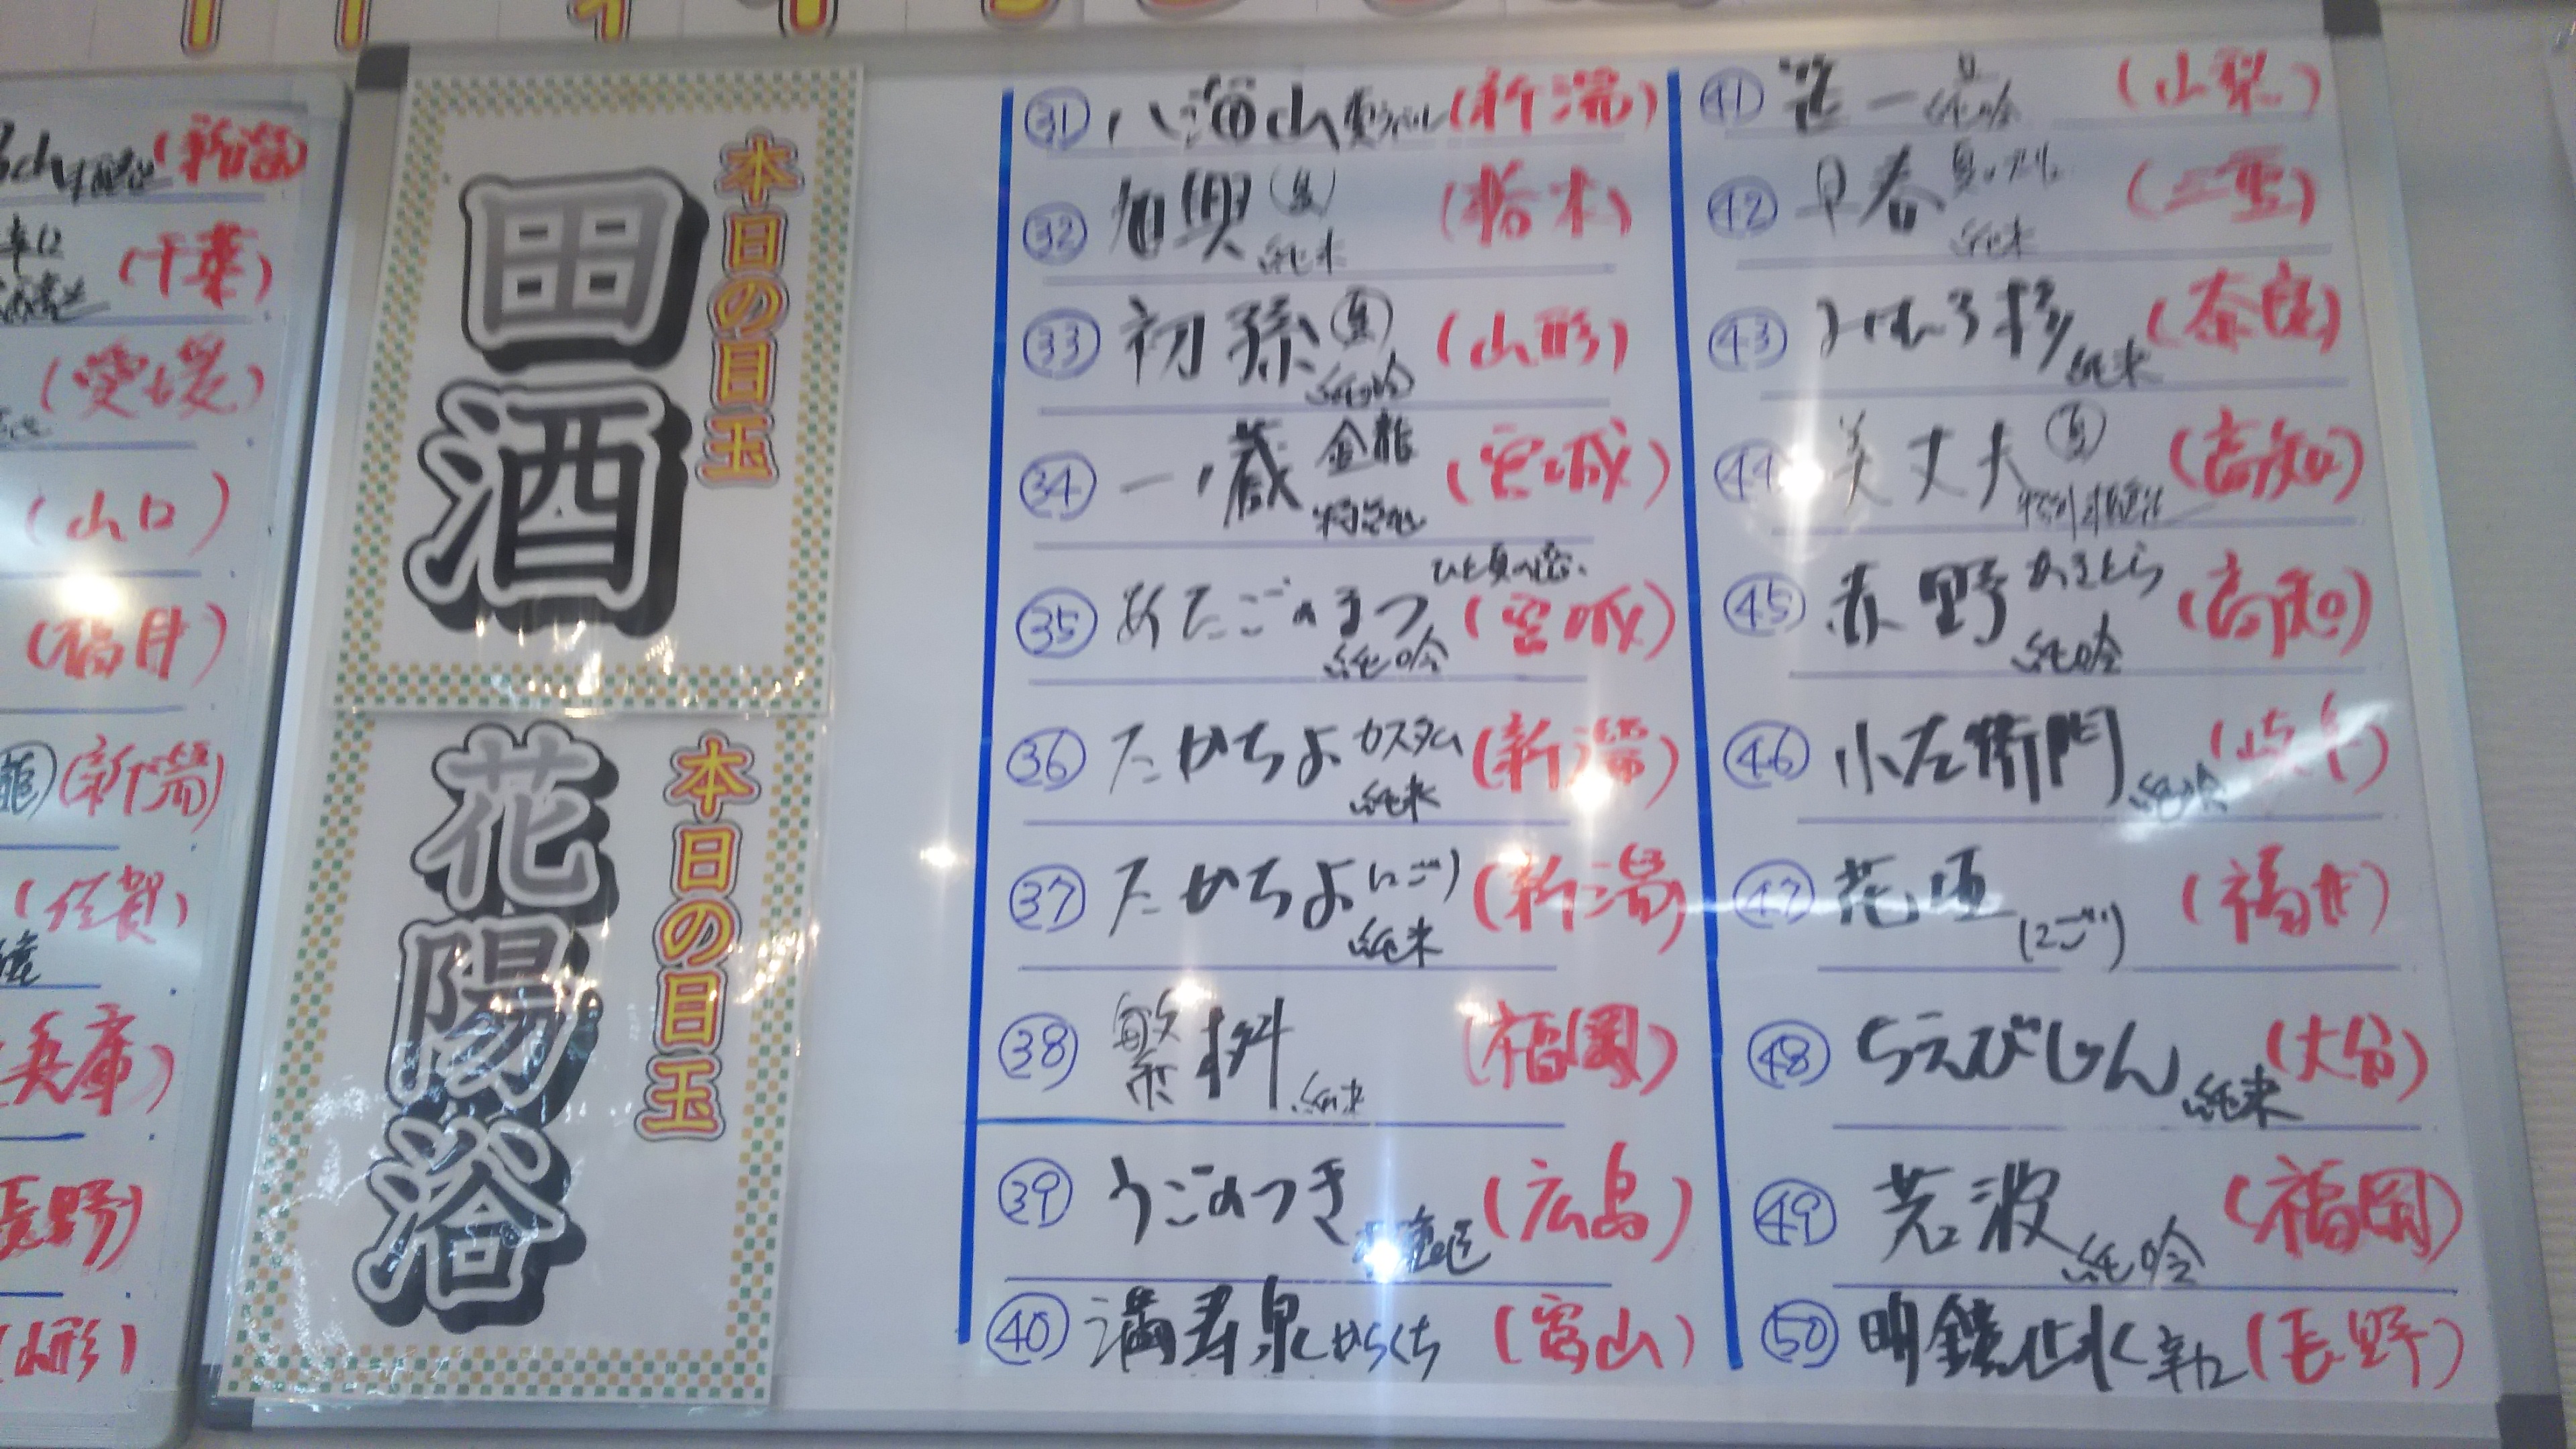 (新潟)
辛口
(千葉)
(愛媛)
(山口)
(福井)
(新潟)
(佐賀)
(兵庫)
長野)
(山形)
本日の目玉
田酒
本日の目玉
花陽浴
㉛ 八海山 (新潟)
㉜ 旭興 (夏) 純米 (栃木)
㉝ 初孫 夏 純吟 (山形)
㉞ 一ノ蔵 金龍 (宮城)
㉟ あたごのまつ ひと夏の恋 純吟 (宮城)
㊱ たかちよ カスタム 純米 (新潟)
㊲ たかちよ にごり 純米 (新潟)
㊳ 繁桝 純米 (福岡)
㊴ うごのつき (広島)
㊵ 満寿泉 からくち (富山)
㊶ 笹一 夏 純吟 (山梨)
㊷ 早春 純米 (三重)
㊸ みむろ杉 純米 (奈良)
㊹ 美丈夫 夏 特別本醸造 (高知)
㊺ 赤野 あきとら 純吟 (高知)
㊻ 小左衛門 純吟 (岐阜)
㊼ 花垣 にごり (福井)
㊽ ちえびじん 純米 (大分)
㊾ 若波 純吟 (福岡)
㊿ 明鏡止水 辛口 (長野)